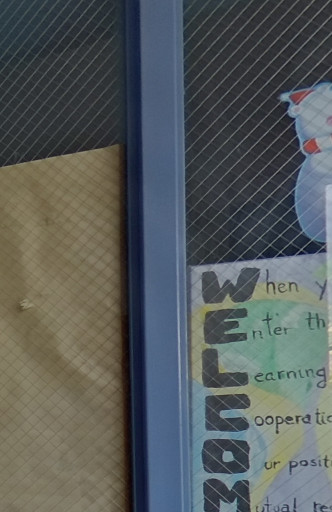 When y
Enter th
Learning
Cooperatio
Our posit
Mutual re